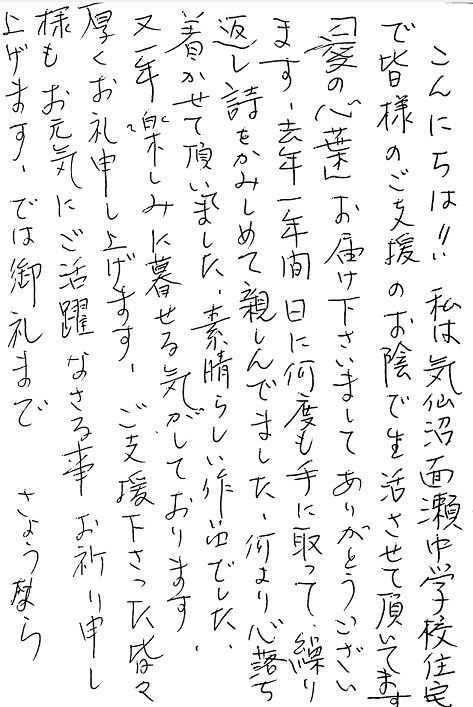 こんにちは!! 私は気仙沼面瀬中学校住宅
で皆様のご支援のお陰で生活させて頂いてます
「愛の心葉」お届け下さいまして ありがとうござい
ます、去年一年間 日に何度も手に取って、繰り
返し 詩をかみしめて親しんでました、何より心落ち
着かせて頂いてました、素晴らしい作品でした、
又一年楽しみに暮せる気がしております、
厚くお礼申し上げます、ご支援下さった皆々
様も お元気にご活躍なさる事 お祈り申し
上げます、では御礼まで さようなら